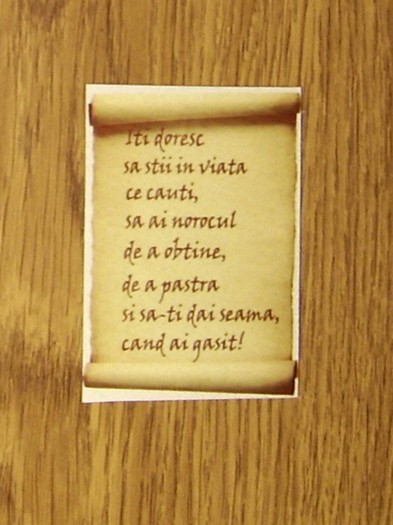 Iti doresc
sa stii in viata
ce cauti,
sa ai norocul
de a obtine,
de a pastra
si sa-ti dai seama,
cand ai gasit!